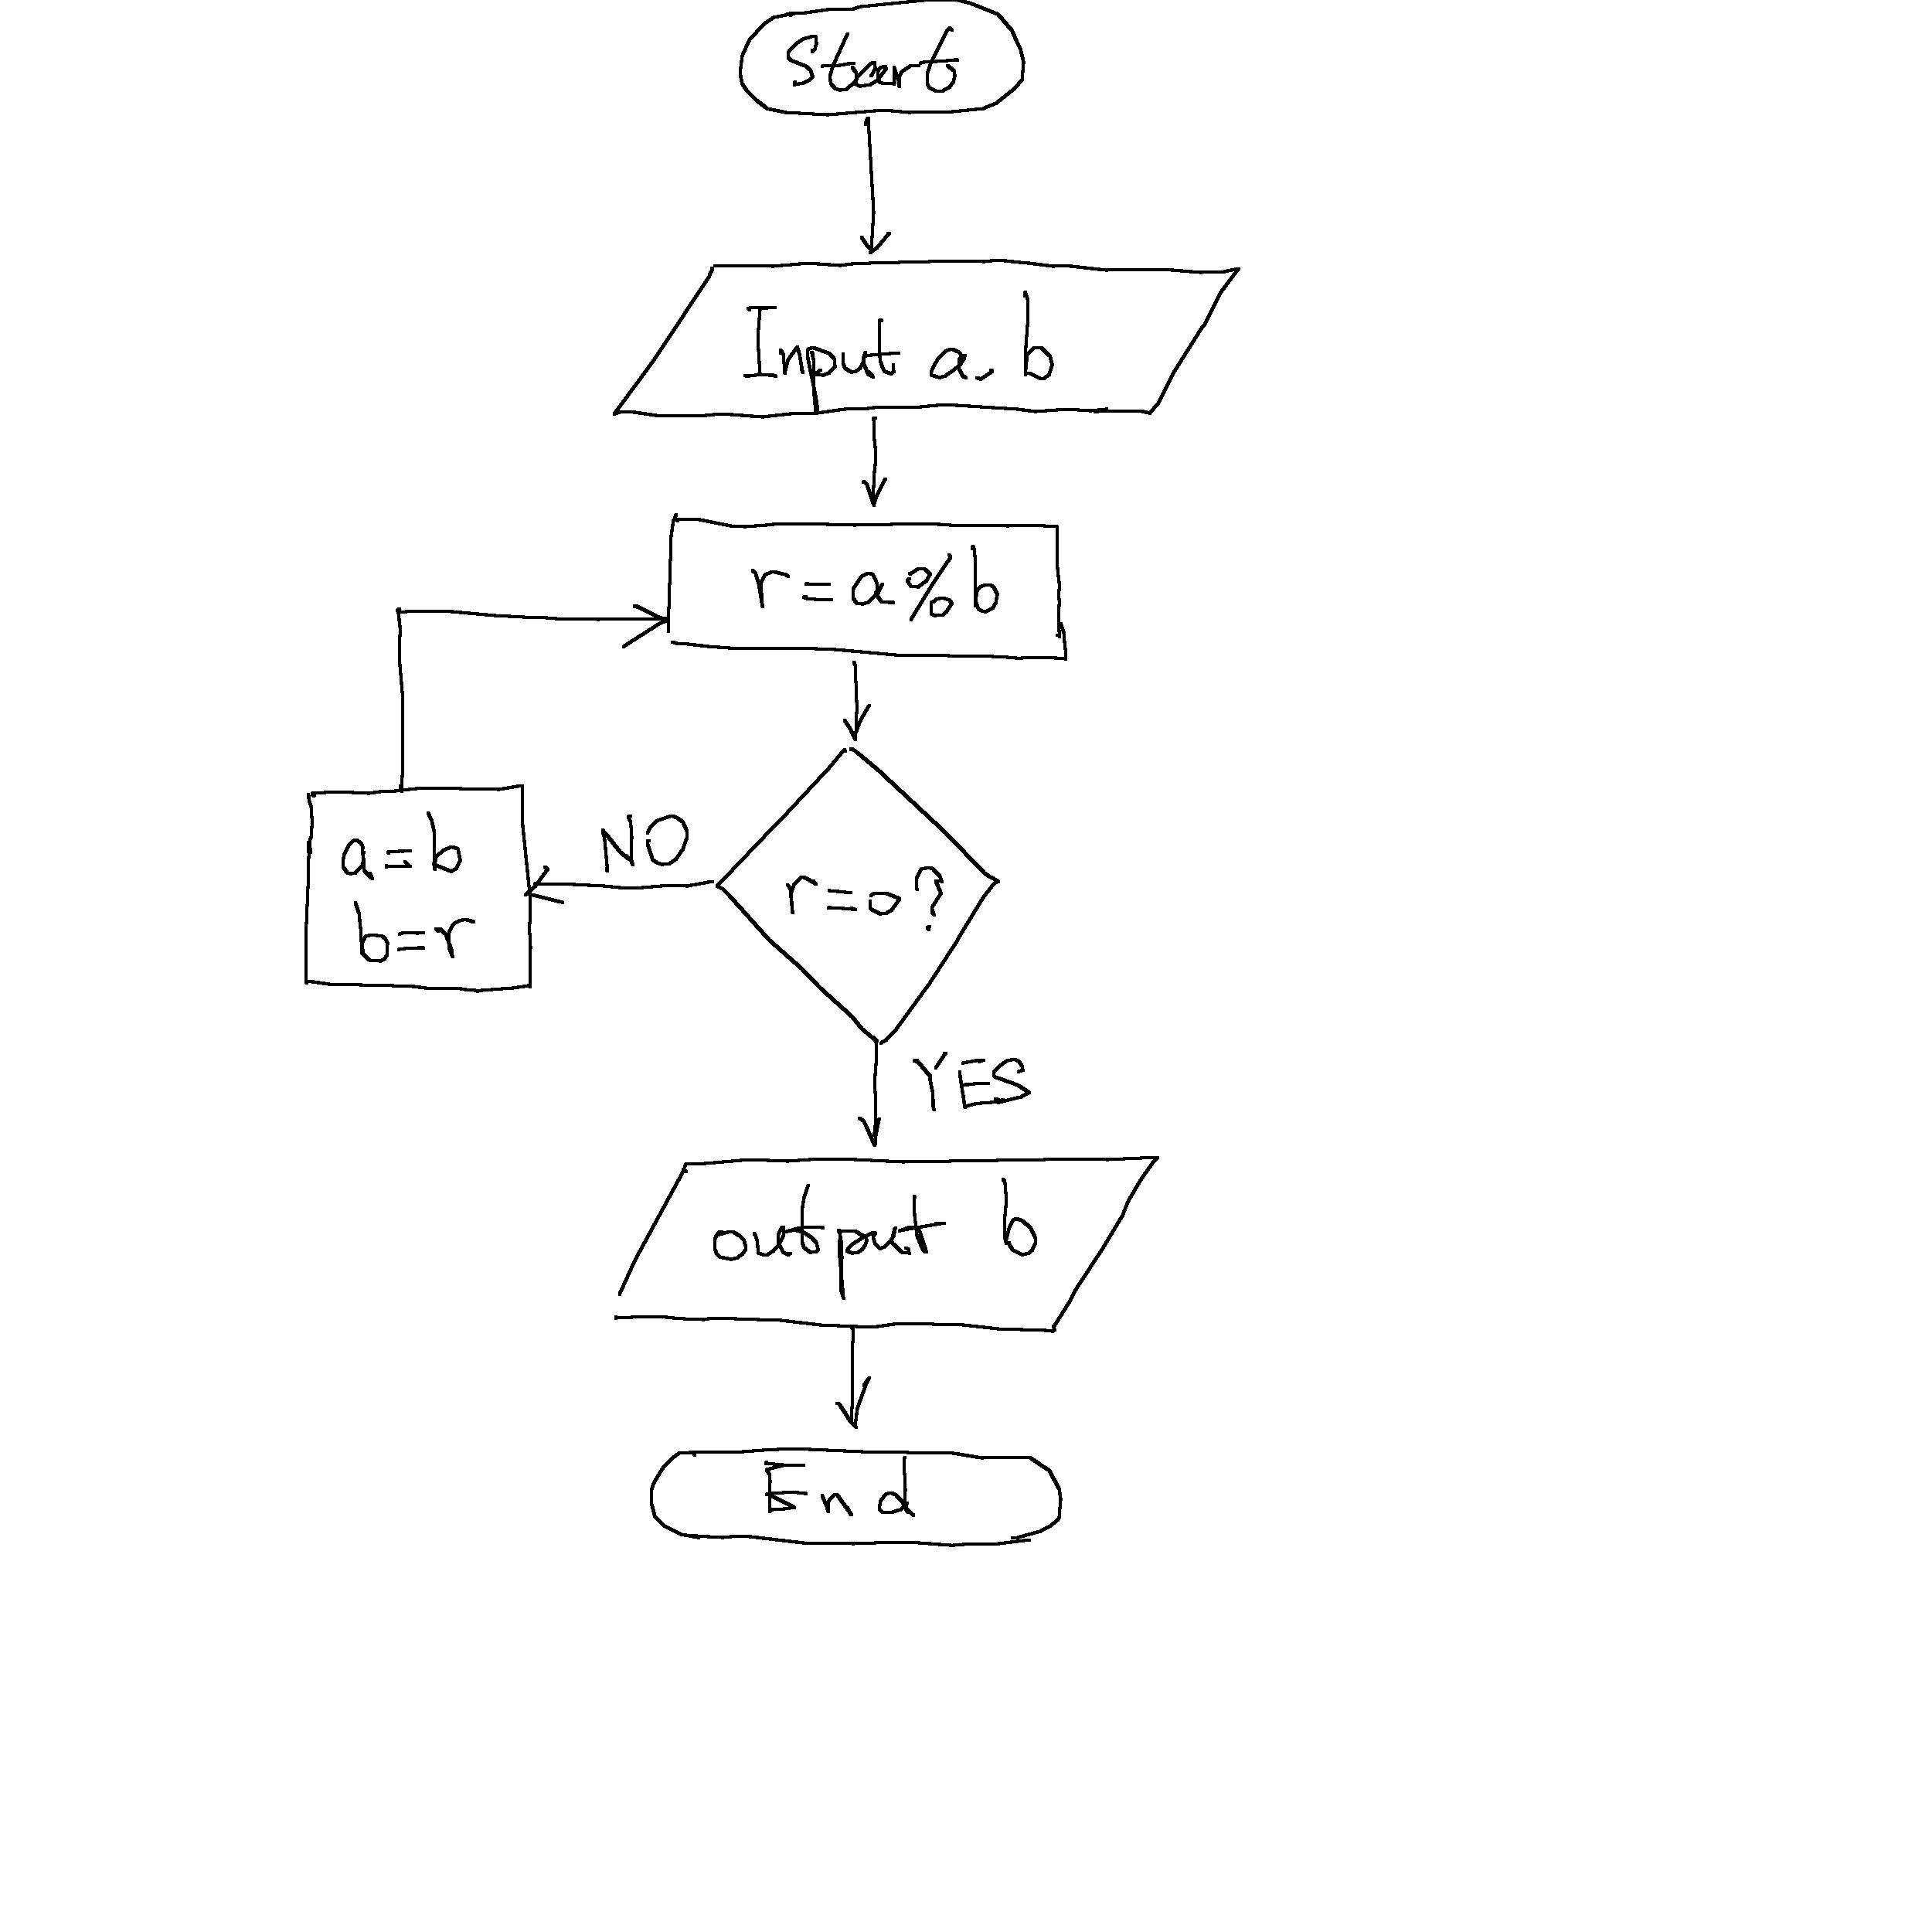 Start
Input a, b
r=a%b
NO
a=b
b=r
r=0?
YES
output b
End